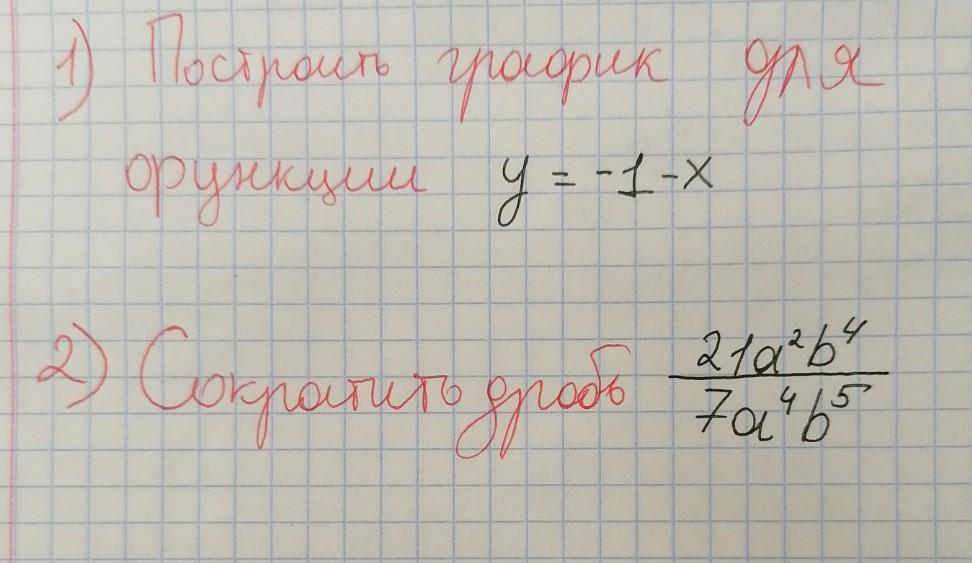 1) Построить график для
функции y = -1-x
2) Сократить дробь \frac{21a²b⁴}{7a⁴b⁵}